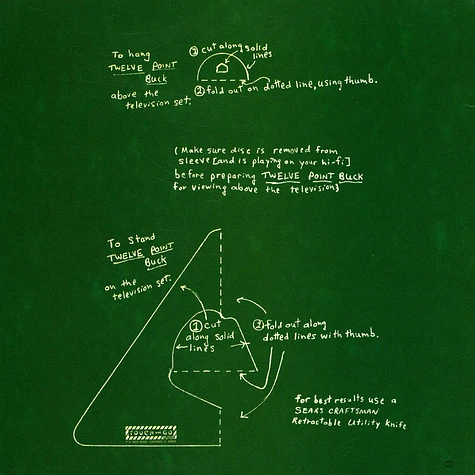 To hang
TWELVE POINT
BUCK
above the
television set:
① cut along solid
lines
② fold out on dotted line, using thumb.
(Make sure disc is removed from
sleeve [and is playing on your hi-fi]
before preparing TWELVE POINT BUCK
for viewing above the television)
To Stand
TWELVE POINT
BUCK
on the
television set:
① cut
along solid
lines
② fold out along
dotted lines with thumb.
for best results use a
SEARS CRAFTSMAN
Retractable Utility Knife
TOUCH AND GO